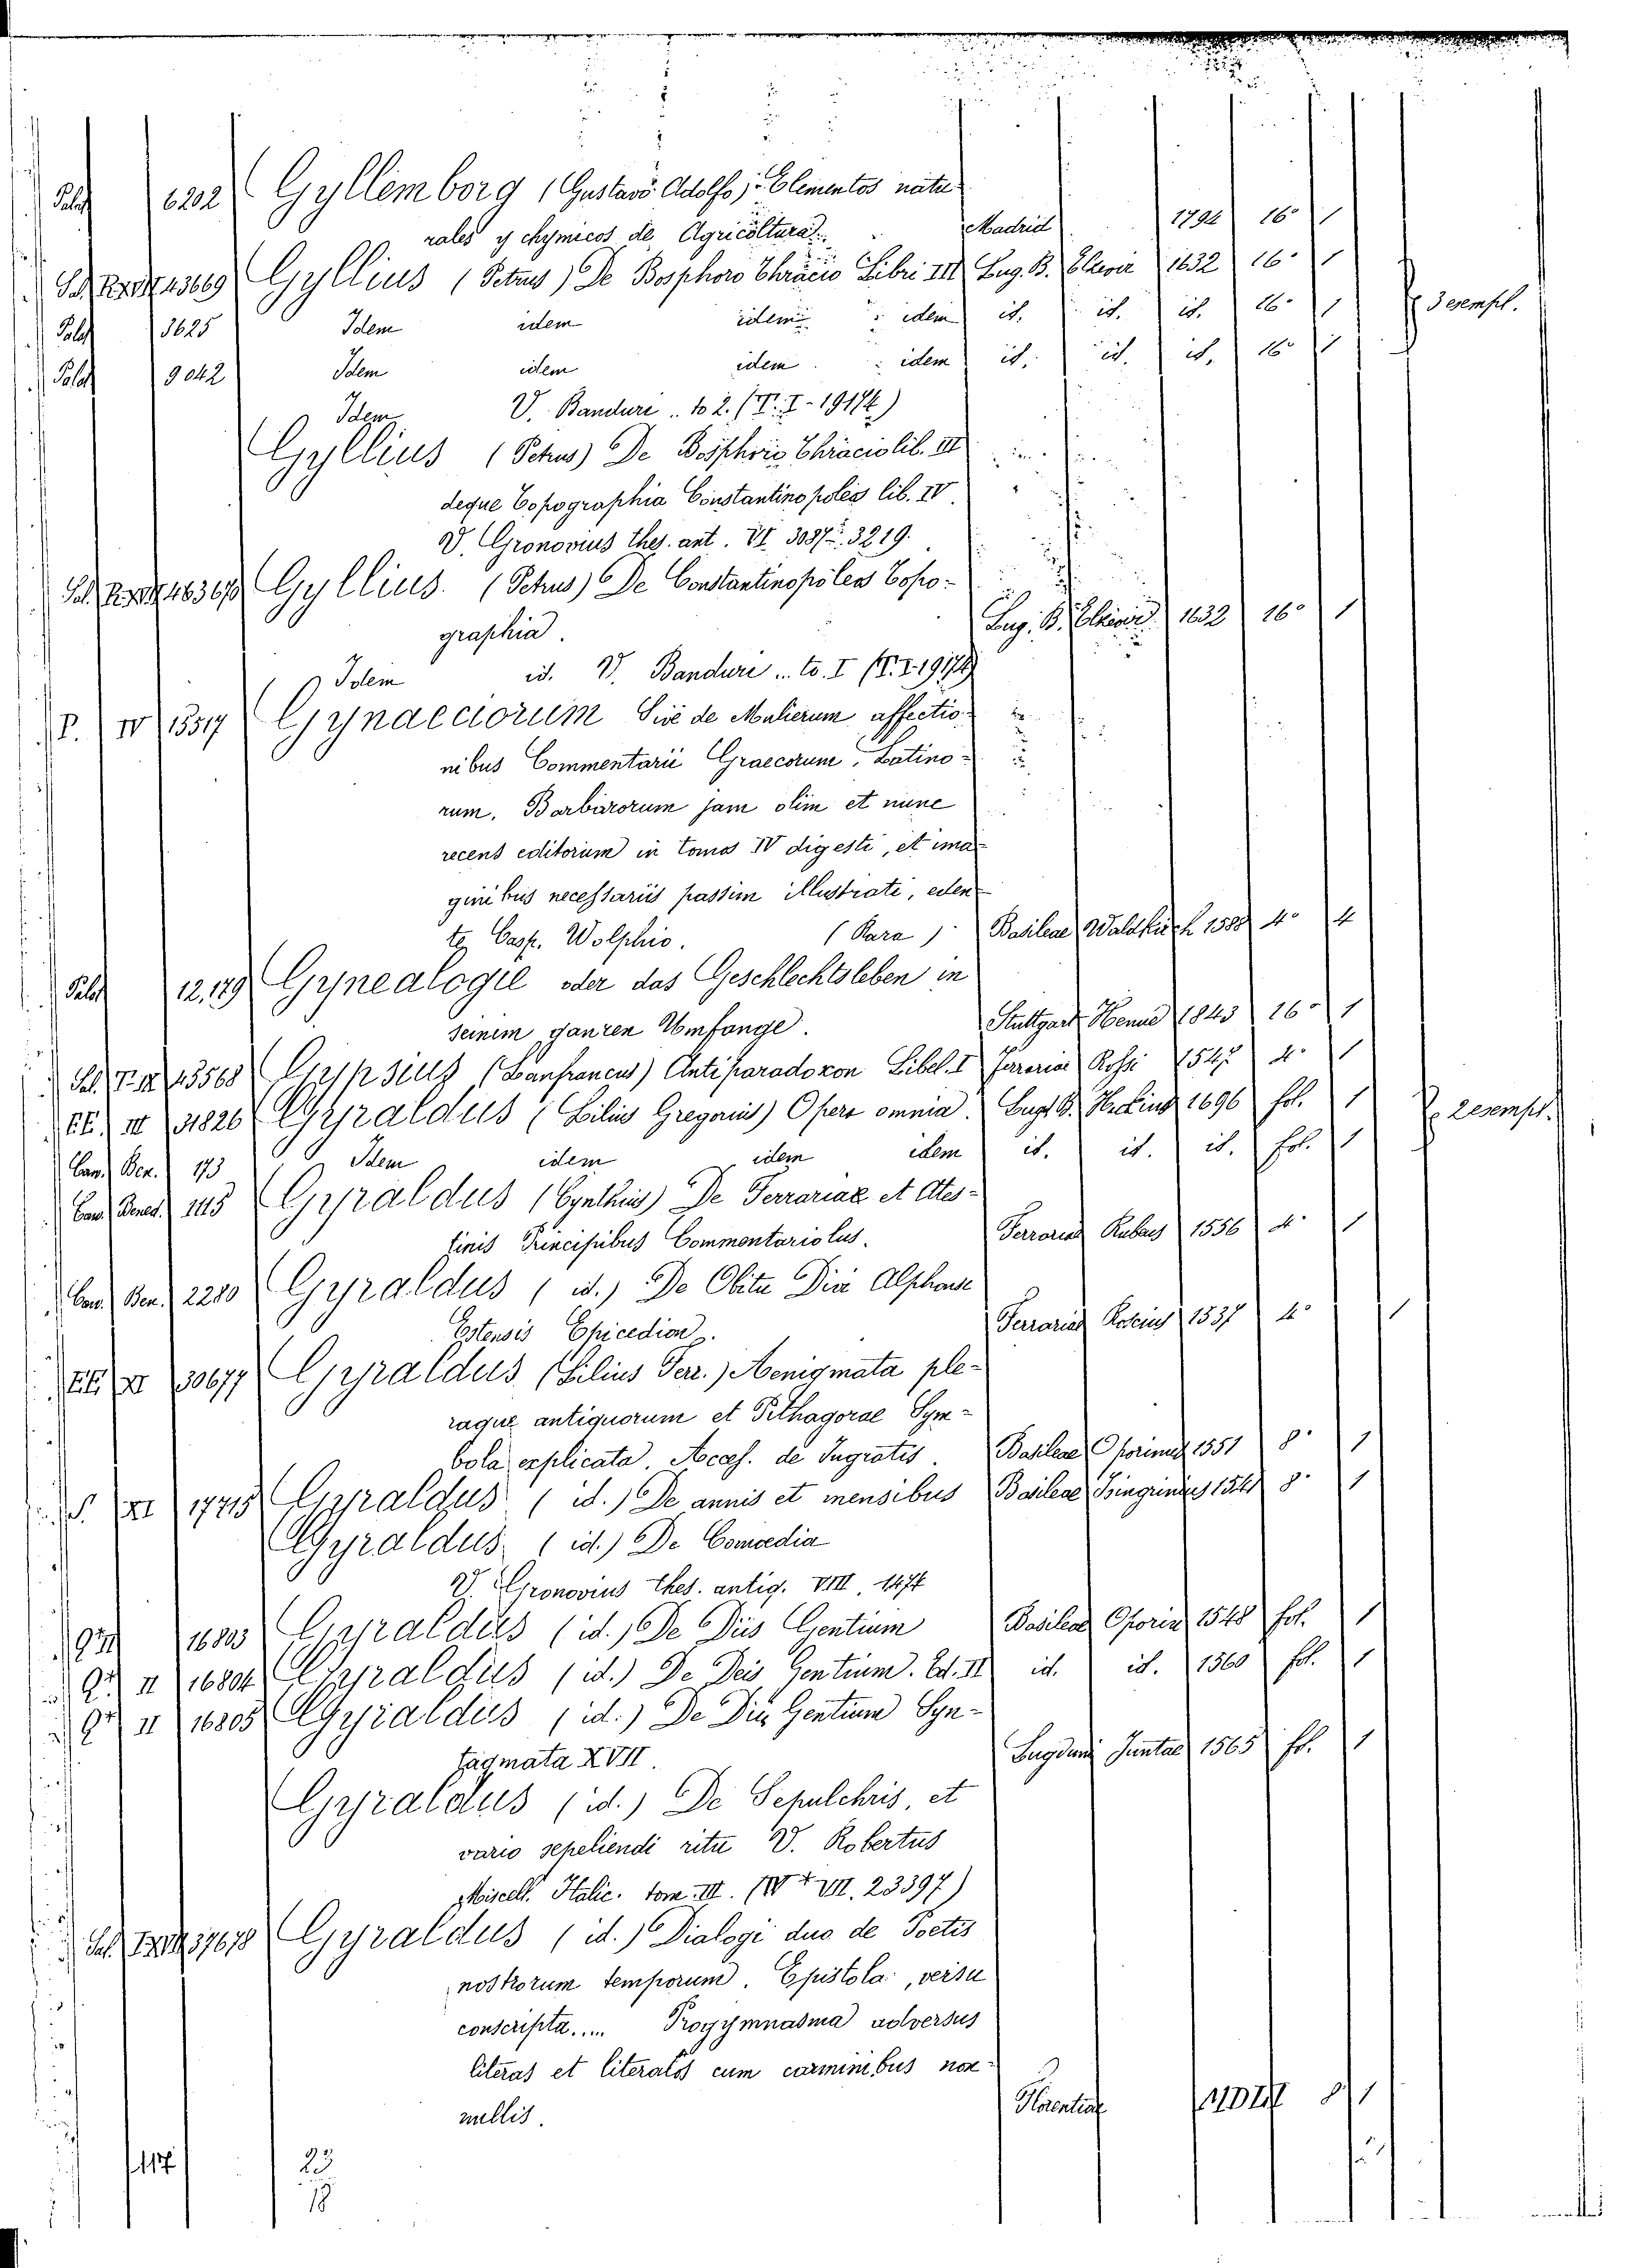 Palat 6202 Gyllemborg (Gustavo Adolfo) Elementos natu-
rales y chymicos de Agricoltura. Madrid 1794 16° 1
43669 Gyllius (Petrus) De Bosphoro Thracio Libri III Lug. B. Elzevir 1632 16° 1
Palat 3625 Idem idem idem idem id. id. id. 16° 1 3 esempl.
Palat 9042 Idem idem idem idem id. id. id. 16° 1
Idem V. Banduri .. to 2. (T. I - 19174)
Gyllius (Petrus) De Bosphoro Thracio lib. III
deque Topographia Constantinopoleos lib. IV.
V. Gronovius thes. ant. VI 3087-3219.
Gyllius. (Petrus) De Constantinopoleos Topo-
graphia. Lug. B. Elzevir 1632 16° 1
Idem id. V. Banduri .. to. I (T. I 19174)
P. IV 13517 Gynaeciorum Sive de Mulierum affectio-
nibus Commentarii Graecorum, Latino-
rum, Barbarorum jam olim et nunc
recens editorum in tomos IV digesti, et ima-
ginibus necessariis passim illustrati, eden-
te Casp. Wolphio. (Rara) Basileae Waldkirch 1588 4° 4
Palat 12,179 Gynealogie oder das Geschlechtsleben in
seinem ganzen Umfange. Stuttgart Henne 1843 16° 1
43568 Gypsius (Lanfrancus) Antiparadoxon Libel. I Ferrariae Rossi 1547 4° 1
EE. III 31826 Gyraldus (Lilius Gregorius) Opera omnia. Lugd. B. Hackius 1696 fol. 1 2 esempl.
Can. Ben. 173 Idem idem idem idem id. id. id. fol. 1
Can. Bened. 1115 Gyraldus (Cynthius) De Ferrariae et Ates-
tinis Principibus Commentariolus. Ferrariae Rubeus 1556 4° 1
Can. Ben. 2280 Gyraldus (id.) De Obitu Divi Alphonsi
Estensis Epicedion. Ferrariae Roscius 1537 4° 1
EE. XI 30677 Gyraldus (Lilius Ferr.) Aenigmata ple-
raque antiquorum et Pithagorae Sym-
bola explicata. Acces. de Ingratis. Basileae Oporinus 1551 8° 1
S. XI 17715 Gyraldus (id.) De annis et mensibus Basileae Isingrinius 1541 8° 1
Gyraldus (id.) De Comoedia
V. Gronovius thes. antiq. VIII, 1474
16803 Gyraldus (id.) De Diis Gentium Basileae Oporin 1548 fol. 1
II 16804 Gyraldus (id.) De Deis Gentium. Ed. II id. id. 1560 fol. 1
II 16805 Gyraldus (id.) De Diis Gentium Syn-
tagmata XVII. Lugduni Juntae 1565 fol. 1
Gyraldus (id.) De Sepulchris, et
vario sepeliendi ritu V. Robertus
Miscell. Italic. tom. III. (VII. 23397)
37678 Gyraldus (id.) Dialogi duo de Poetis
nostrorum temporum. Epistola, versu
conscripta..... Progymnasma adversus
literas et literatos cum carminibus non-
nullis. Florentiae 8° 1
117 23
18